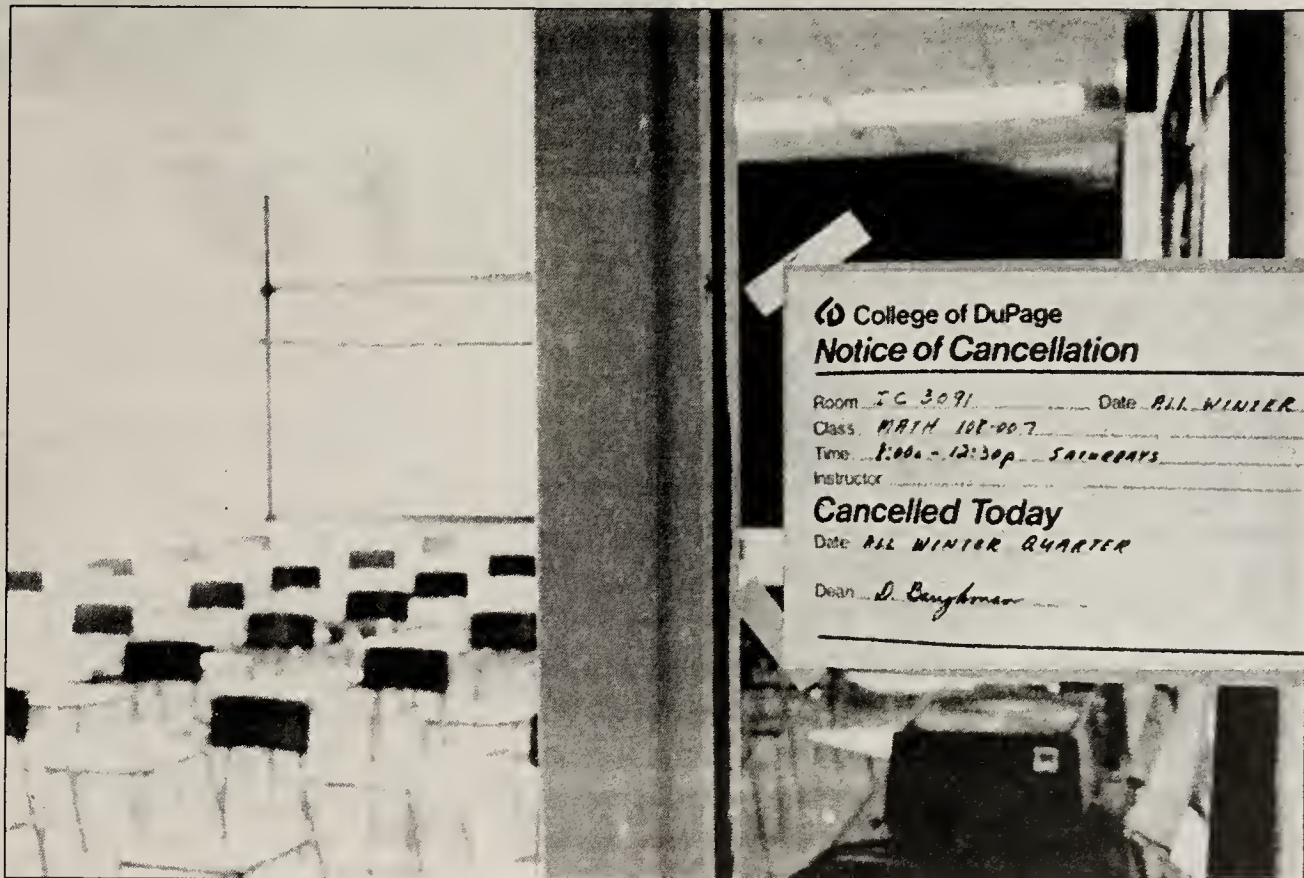 College of DuPage
Notice of Cancellation
Room IC 3091 Date ALL WINTER
Class MATH 108-007
Time 8:00a - 12:30p SATURDAYS
Instructor
Cancelled Today
Date ALL WINTER QUARTER
Dean D. Baughman